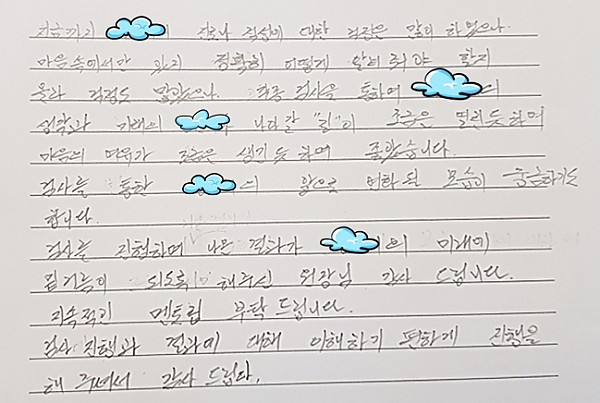 지금까지 의 진로나 적성에 대한 걱정은 많이 하였으나.
마음속에서만 과리 정확히 어떻게 알려줘야 할지
몰라 걱정도 많았으나. 각종 검사를 통하여 의
성향과 미래의 나타날 "길"이 조금은 열린듯하여
마음의 여유가 조금은 생긴듯 하여 좋았습니다.
검사를 통한 의 앞으로 변화될 모습이 궁금하기도
합니다.
검사를 진행하며 나온 결과가 의 미래에
밑거름이 되도록 해주신 원장님 감사 드립니다.
지속적인 멘토링 부탁드립니다.
검사 진행과 결과에 대해 이해하기 편하게 진행을
해 주셔서 감사 드립다.